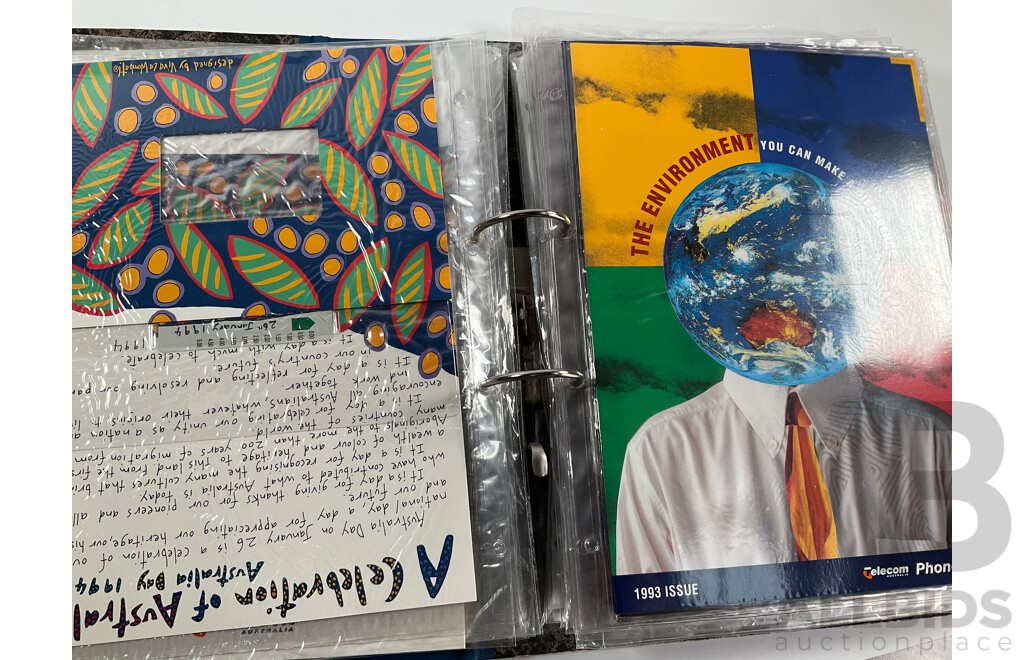 designed by Viva La Wombat! ©
26th January 1994
A Celebration of Austral
Australia Day 1994
Australia Day on January 26 is a celebration of ou
national day, a day for appreciating our heritage, our his
and our future.
It is a day for giving thanks for our pioneers and all
who have contributed to what Australia is today.
It is a day for recognising the many cultures that brin
a wealth of colour and heritage to this land, from the firs
Aboriginals to the more than 200 years of migration from
many countries of the world.
It is a day for celebrating our unity as a nation a
encouraging all Australians, whatever their origins, to li
and work together.
It is a day for reflecting and resolving our par
in our country's future.
It is a day with much to celebrate
1994
AUSTRALIA
THE ENVIRONMENT YOU CAN MAKE
1993 ISSUE
Telecom
AUSTRALIA
Phon
B
ALLBIDS
auctionplace